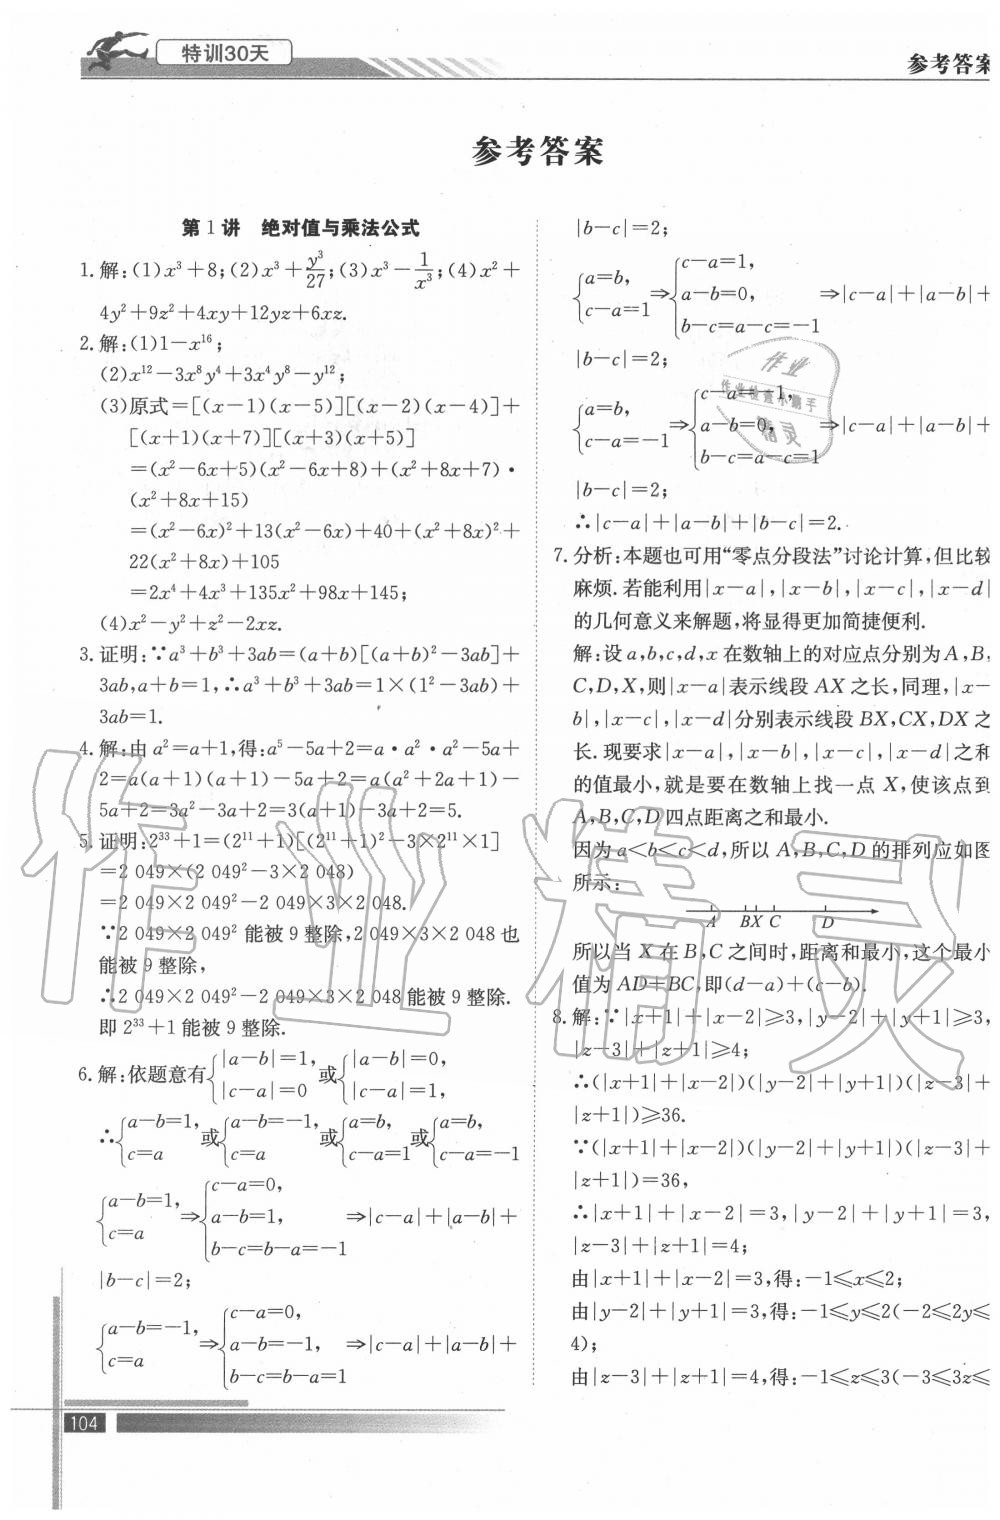 特训30天
参考答案
参考答案
第1讲 绝对值与乘法公式
1.解:(1)x³+8;(2)x³+y³/27;(3)x³-1/x³;(4)x²+
4y²+9z²+4xy+12yz+6xz.
2.解:(1)1-x¹⁶;
(2)x¹²-3x⁸y⁴+3x⁴y⁸-y¹²;
(3)原式=[(x-1)(x-5)][(x-2)(x-4)]+
[(x+1)(x+7)][(x+3)(x+5)]
=(x²-6x+5)(x²-6x+8)+(x²+8x+7)·
(x²+8x+15)
=(x²-6x)²+13(x²-6x)+40+(x²+8x)²+
22(x²+8x)+105
=2x⁴+4x³+135x²+98x+145;
(4)x²-y²+z²-2xz.
3.证明:∵a³+b³+3ab=(a+b)[(a+b)²-3ab]+
3ab,a+b=1,∴a³+b³+3ab=1×(1²-3ab)+
3ab=1.
4.解:由a²=a+1,得:a⁵-5a+2=a·a²·a²-5a+
2=a(a+1)(a+1)-5a+2=a(a²+2a+1)-
5a+2=3a²-3a+2=3(a+1)-3a+2=5.
5.证明:2³³+1=(2¹¹+1)[(2¹¹+1)²-3×2¹¹×1]
=2 049×(2 049²-3×2 048)
=2 049×2 049²-2 049×3×2 048.
∵2 049×2 049²能被9整除,2 049×3×2 048也
能被9整除,
∴2 049×2 049²-2 049×3×2 048能被9整除.
即2³³+1能被9整除.
6.解:依题意有{|a-b|=1, |c-a|=0 或{|a-b|=0, |c-a|=1,
∴{a-b=1, c=a 或{a-b=-1, c=a 或{a=b, c-a=1 或{a=b, c-a=-1
{a-b=1, c=a ⇒{c-a=0, a-b=1, b-c=b-a=-1 ⇒|c-a|+|a-b|+
|b-c|=2;
{a-b=-1, c=a ⇒{c-a=0, a-b=-1, b-c=b-a=1 ⇒|c-a|+|a-b|+
|b-c|=2;
{a=b, c-a=1 ⇒{c-a=1, a-b=0, b-c=a-c=-1 ⇒|c-a|+|a-b|+
|b-c|=2;
{a=b, c-a=-1 ⇒{c-a=-1, a-b=0, b-c=a-c=1 ⇒|c-a|+|a-b|+
|b-c|=2;
∴|c-a|+|a-b|+|b-c|=2.
7.分析:本题也可用“零点分段法”讨论计算,但比较
麻烦.若能利用|x-a|,|x-b|,|x-c|,|x-d|
的几何意义来解题,将显得更加简捷便利.
解:设a,b,c,d,x在数轴上的对应点分别为A,B,
C,D,X,则|x-a|表示线段AX之长,同理,|x-
b|,|x-c|,|x-d|分别表示线段BX,CX,DX之
长.现要求|x-a|,|x-b|,|x-c|,|x-d|之和
的值最小,就是要在数轴上找一点X,使该点到
A,B,C,D四点距离之和最小.
因为a<b<c<d,所以A,B,C,D的排列应如图
所示:
A BX C D
所以当X在B,C之间时,距离和最小,这个最小
值为AD+BC,即(d-a)+(c-b).
8.解:∵|x+1|+|x-2|≥3,|y-2|+|y+1|≥3,
|z-3|+|z+1|≥4;
∴(|x+1|+|x-2|)(|y-2|+|y+1|)(|z-3|+
|z+1|)≥36.
∵(|x+1|+|x-2|)(|y-2|+|y+1|)(|z-3|+
|z+1|)=36,
∴|x+1|+|x-2|=3,|y-2|+|y+1|=3,
|z-3|+|z+1|=4;
由|x+1|+|x-2|=3,得:-1≤x≤2;
由|y-2|+|y+1|=3,得:-1≤y≤2(-2≤2y≤
4);
由|z-3|+|z+1|=4,得:-1≤z≤3(-3≤3z≤
104
作业
作业检查小助手
精灵
作业精灵